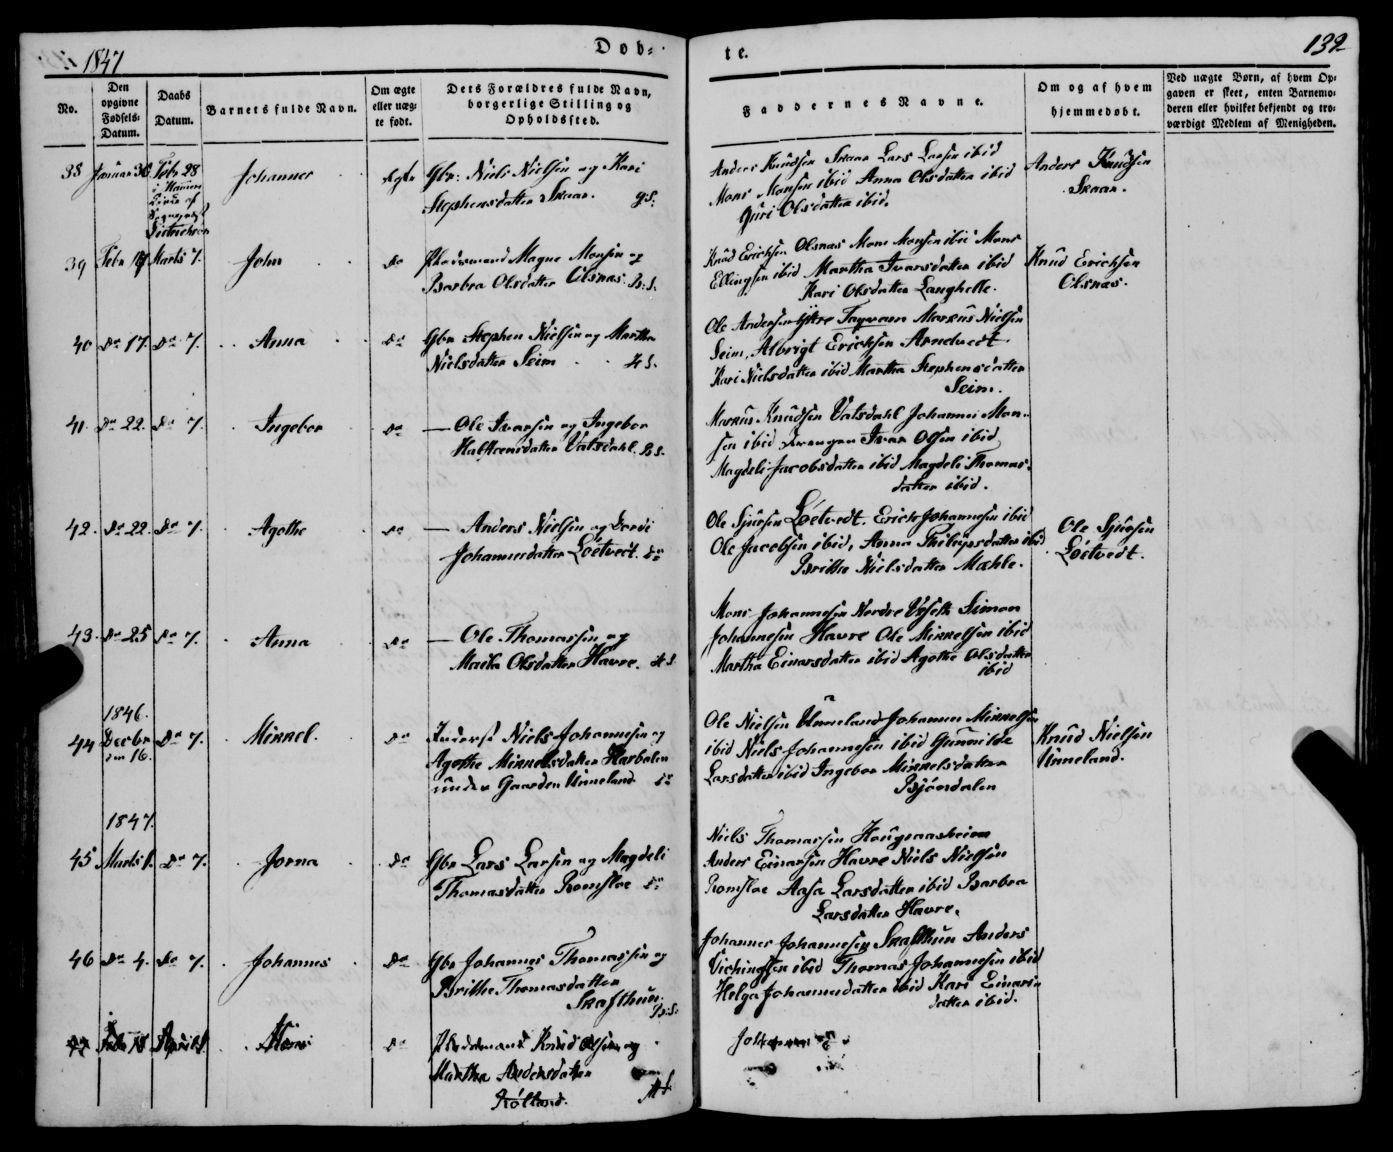 1847
Døb-
te.
132
No.
Den opgivne Fødsels-Datum.
Daabs Datum.
Barnets fulde Navn.
Om ægte eller uæg-te født.
Dets Forældres fulde Navn, borgerlige Stilling og Opholdssted.
Faddernes Navne.
Om og af hvem hjemmedøbt.
Ved uægte Børn, af hvem Op-
gaven er skeet, enten Barnemo-
deren eller hvilket bekjendt og tro-
værdigt Medlem af Menigheden.
38 Januar 30 Febr 28 Johannes Ægte Gbr: Niels Nielsen og Kari
Stephensdatter Skaar.
Anders Knudsen Skaar Lars Larsen ibid
Mons Monsen ibid Anna Olsdatter ibid
Guri Olsdatter ibid.
Anders Knudsen
Skaar.
39 Febr Marts 7. John Do Pladsmand Magne Monsen og
Barbra Olsdatter Olsnæs.
Knud Ericksen Olsnæs Mons Monsen ibid Mons
Ellingsen ibid Martha Ivarsdatter ibid
Kari Olsdatter Langhelle.
Knud Ericksen
Olsnæs.
40 Do 17 Do 7. Anna Do Gbr Stephen Nielsen og Martha
Nielsdatter Seim
Ole Andersen Ystre Tayvam Markus Nielsen
Seim, Albrigt Ericksen Arnetvedt
Kari Nielsdatter ibid Martha Stephensdatter
Seim.
41. Do 22. Do 7. Ingebor Do — Ole Ivarsen og Ingebor
Halstensdatter Vatsdahl.
Markus Knudsen Vatsdahl Johannes Mon-
sen ibid Drengen Ivar Olsen ibid
Magdeli Jacobsdatter ibid Magdeli Thomas-
datter ibid.
42. Do 22. Do 7. Agathe Do — Anders Nielsen og Dordi
Johannesdatter Løtvedt. Do
Ole Sjursen Løtvedt. Erick Johannesen ibid
Ole Jacobsen ibid, Anna Philipsdatter ibid
Brithe Nielsdatter Mæhle.
Ole Sjursen
Løtvedt.
43. Do 25 Do 7. Anna Do — Ole Thomassen og
Marita Olsdatter Havre.
Mons Johannesen Nordre Simon
Johannesen Havre Ole Mikkelsen ibid
Martha Einarsdatter ibid Agathe Olsdatter
ibid
1846.
44 Decbr
den 16. Do 7. Mikkel. Do Inderst Niels Johannesen og
Agathe Mikkelsdatter Harbalen
under Gaarden Unneland Do
Ole Nielsen Unneland Johannes Mikkelsen
ibid Niels Johannesen ibid Gunnilde
Larsdatter ibid Ingebor Mikkelsdatter
Bjørndalen
Knud Nielsen
Unneland.
1847.
45 Marts 1. Do 7. Jorna Do Gbr Lars Larsen og Magdeli
Thomasdatter Romsloe Do
Niels Thomassen Hougmarsheim
Anders Einarsen Havre Niels Nielsen
Romsloe Aasa Larsdatter ibid Barbra
Larsdatter Havre.
46 Do 4. Do 7. Johannes Do Gbr Johannes Thomassen og
Brithe Thomasdatter
Skafthun.
Johannes Johannesen Skafthun Anders
Vichingsen ibid Thomas Johannesen ibid
Helga Johannesdatter ibid Kari Einars
datter ibid.
April Do Pladsmand Knud Olsen og
Martha Andersdatter
Røtland.
Johannes